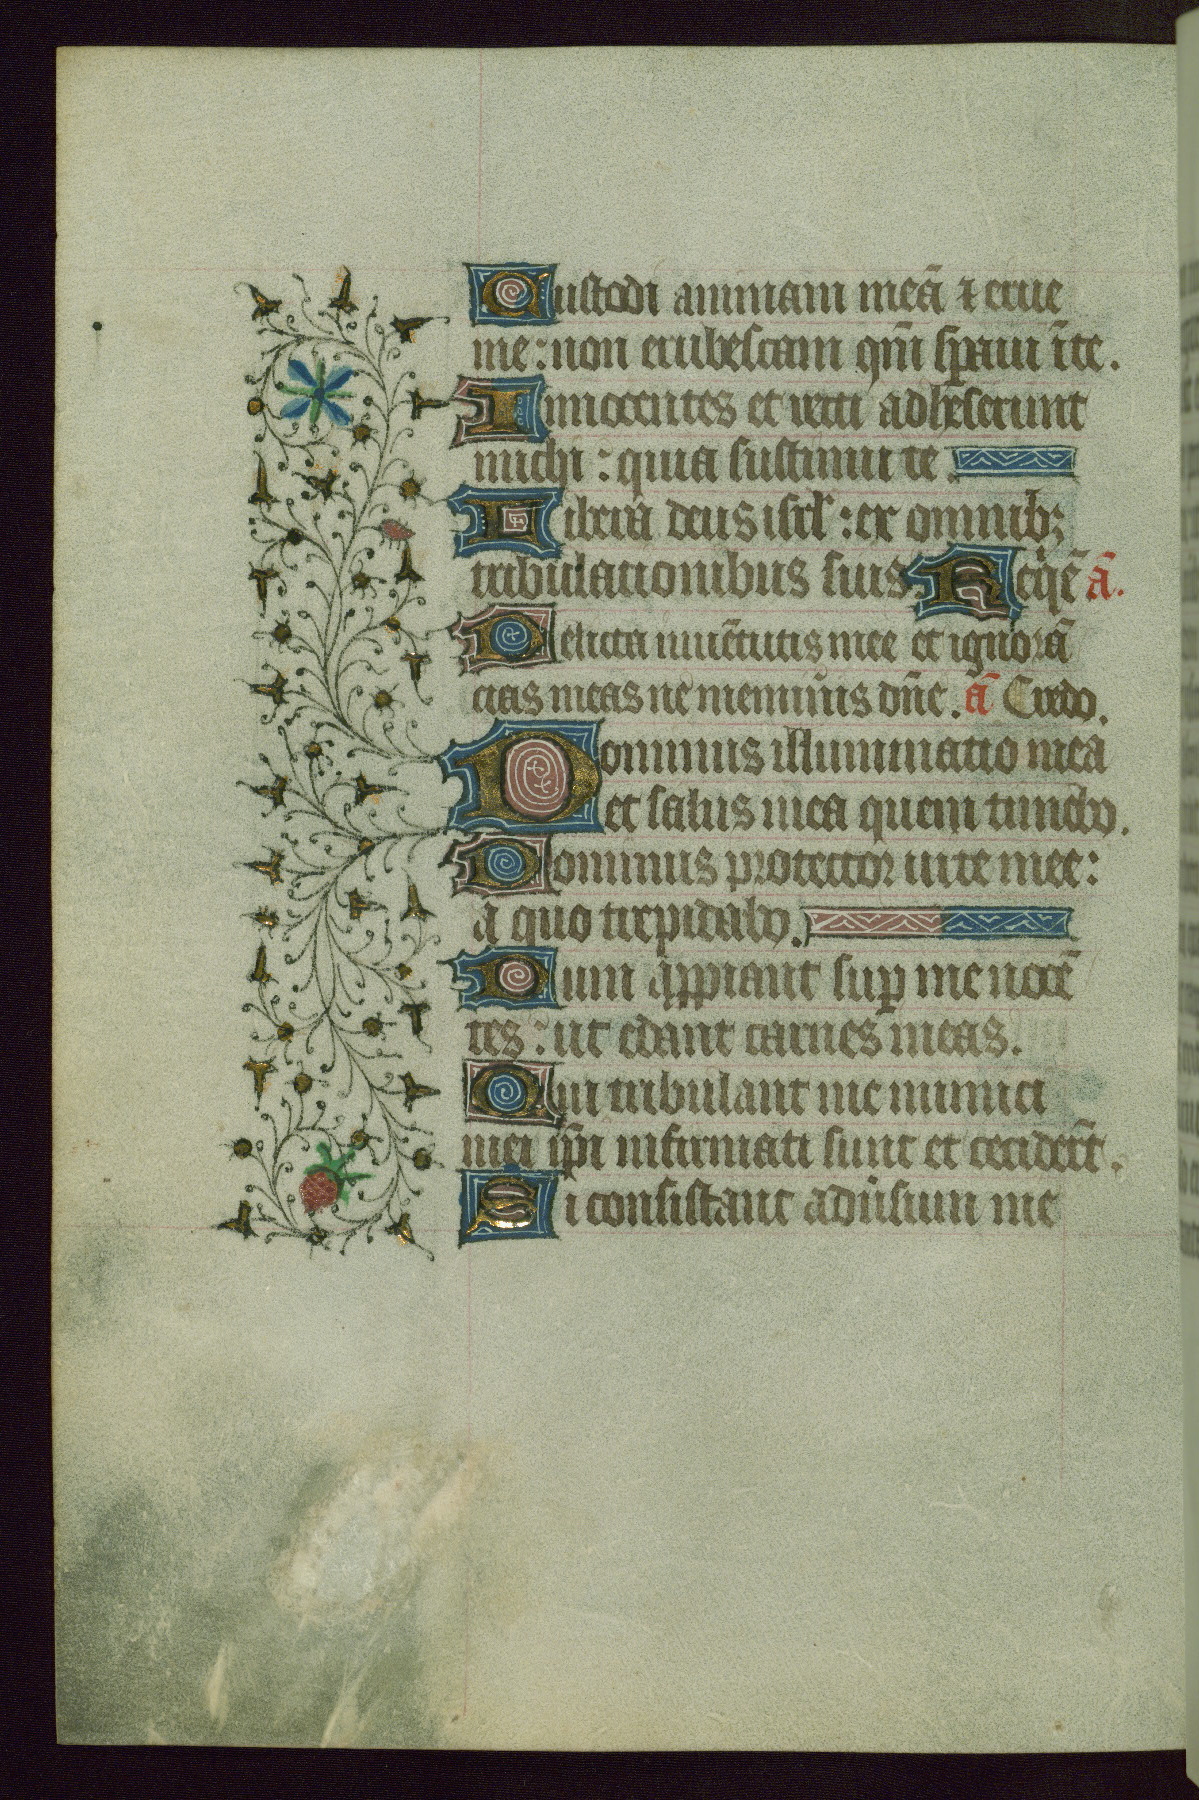 Custodi animam meā ⁊ erue
me : non erubescam qm̄ speraui ī te.
Innocentes et recti adheserunt
michi : quia sustinui te.
Libera deus isrl̄ : ex omnibꝫ
tribulationibus suis. Requiē ā.
Delicta iuuētutis mee et ignorā
cias meas ne memineris dn̄e. ā Credo.
Dominus illuminatio mea
et salus mea quem timebo.
Dominus protector uite mee :
a quo trepidabo.
Dum appiant suꝑ me nocē
tes : ut edant carnes meas.
Qui tribulant me inimici
mei ip̄i infirmati sunt et cecider̄t.
Si consistant adūsum me